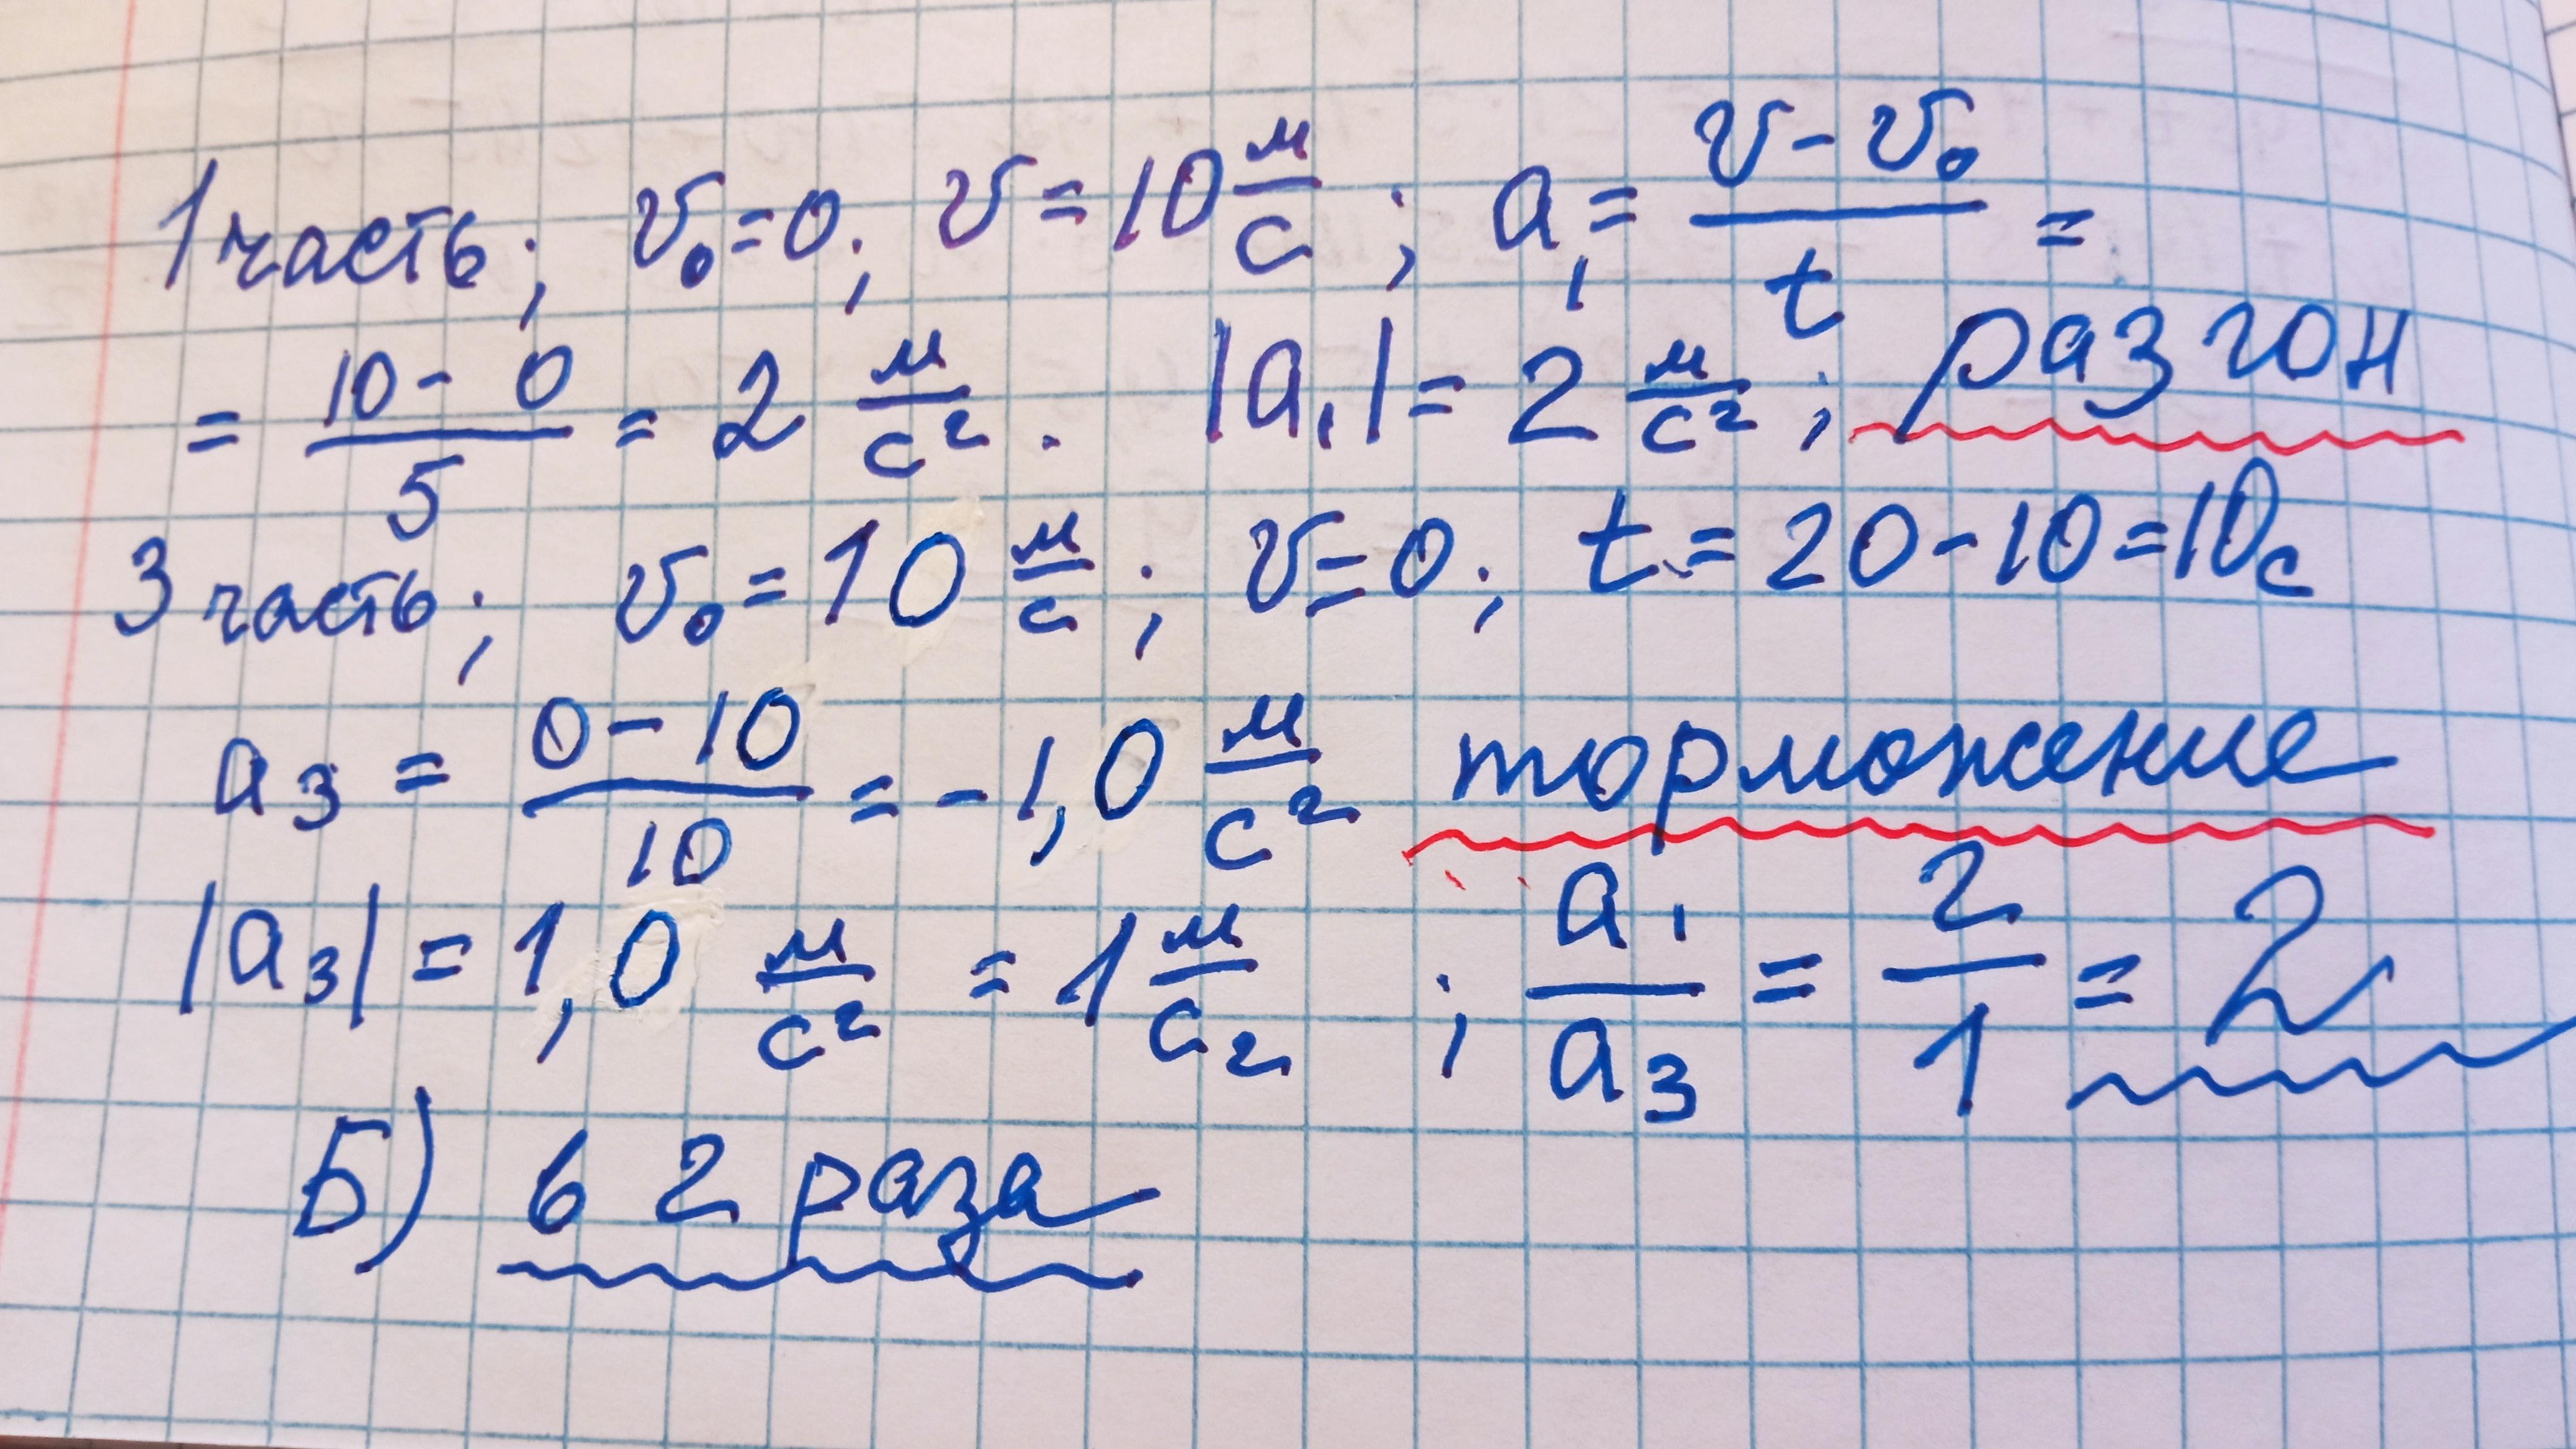 1 часть; v₀=0; v=10 м/с; a₁= (v-v₀)/t =
= (10-0)/5 = 2 м/с². |a₁|= 2 м/с²; разгон
3 часть; v₀=10 м/с; v=0; t=20-10=10с
a₃ = (0-10)/10 = -1,0 м/с² торможение
|a₃| = 1,0 м/с² = 1 м/с₂ ; a₁/a₃ = 2/1 = 2
Б) в 2 раза